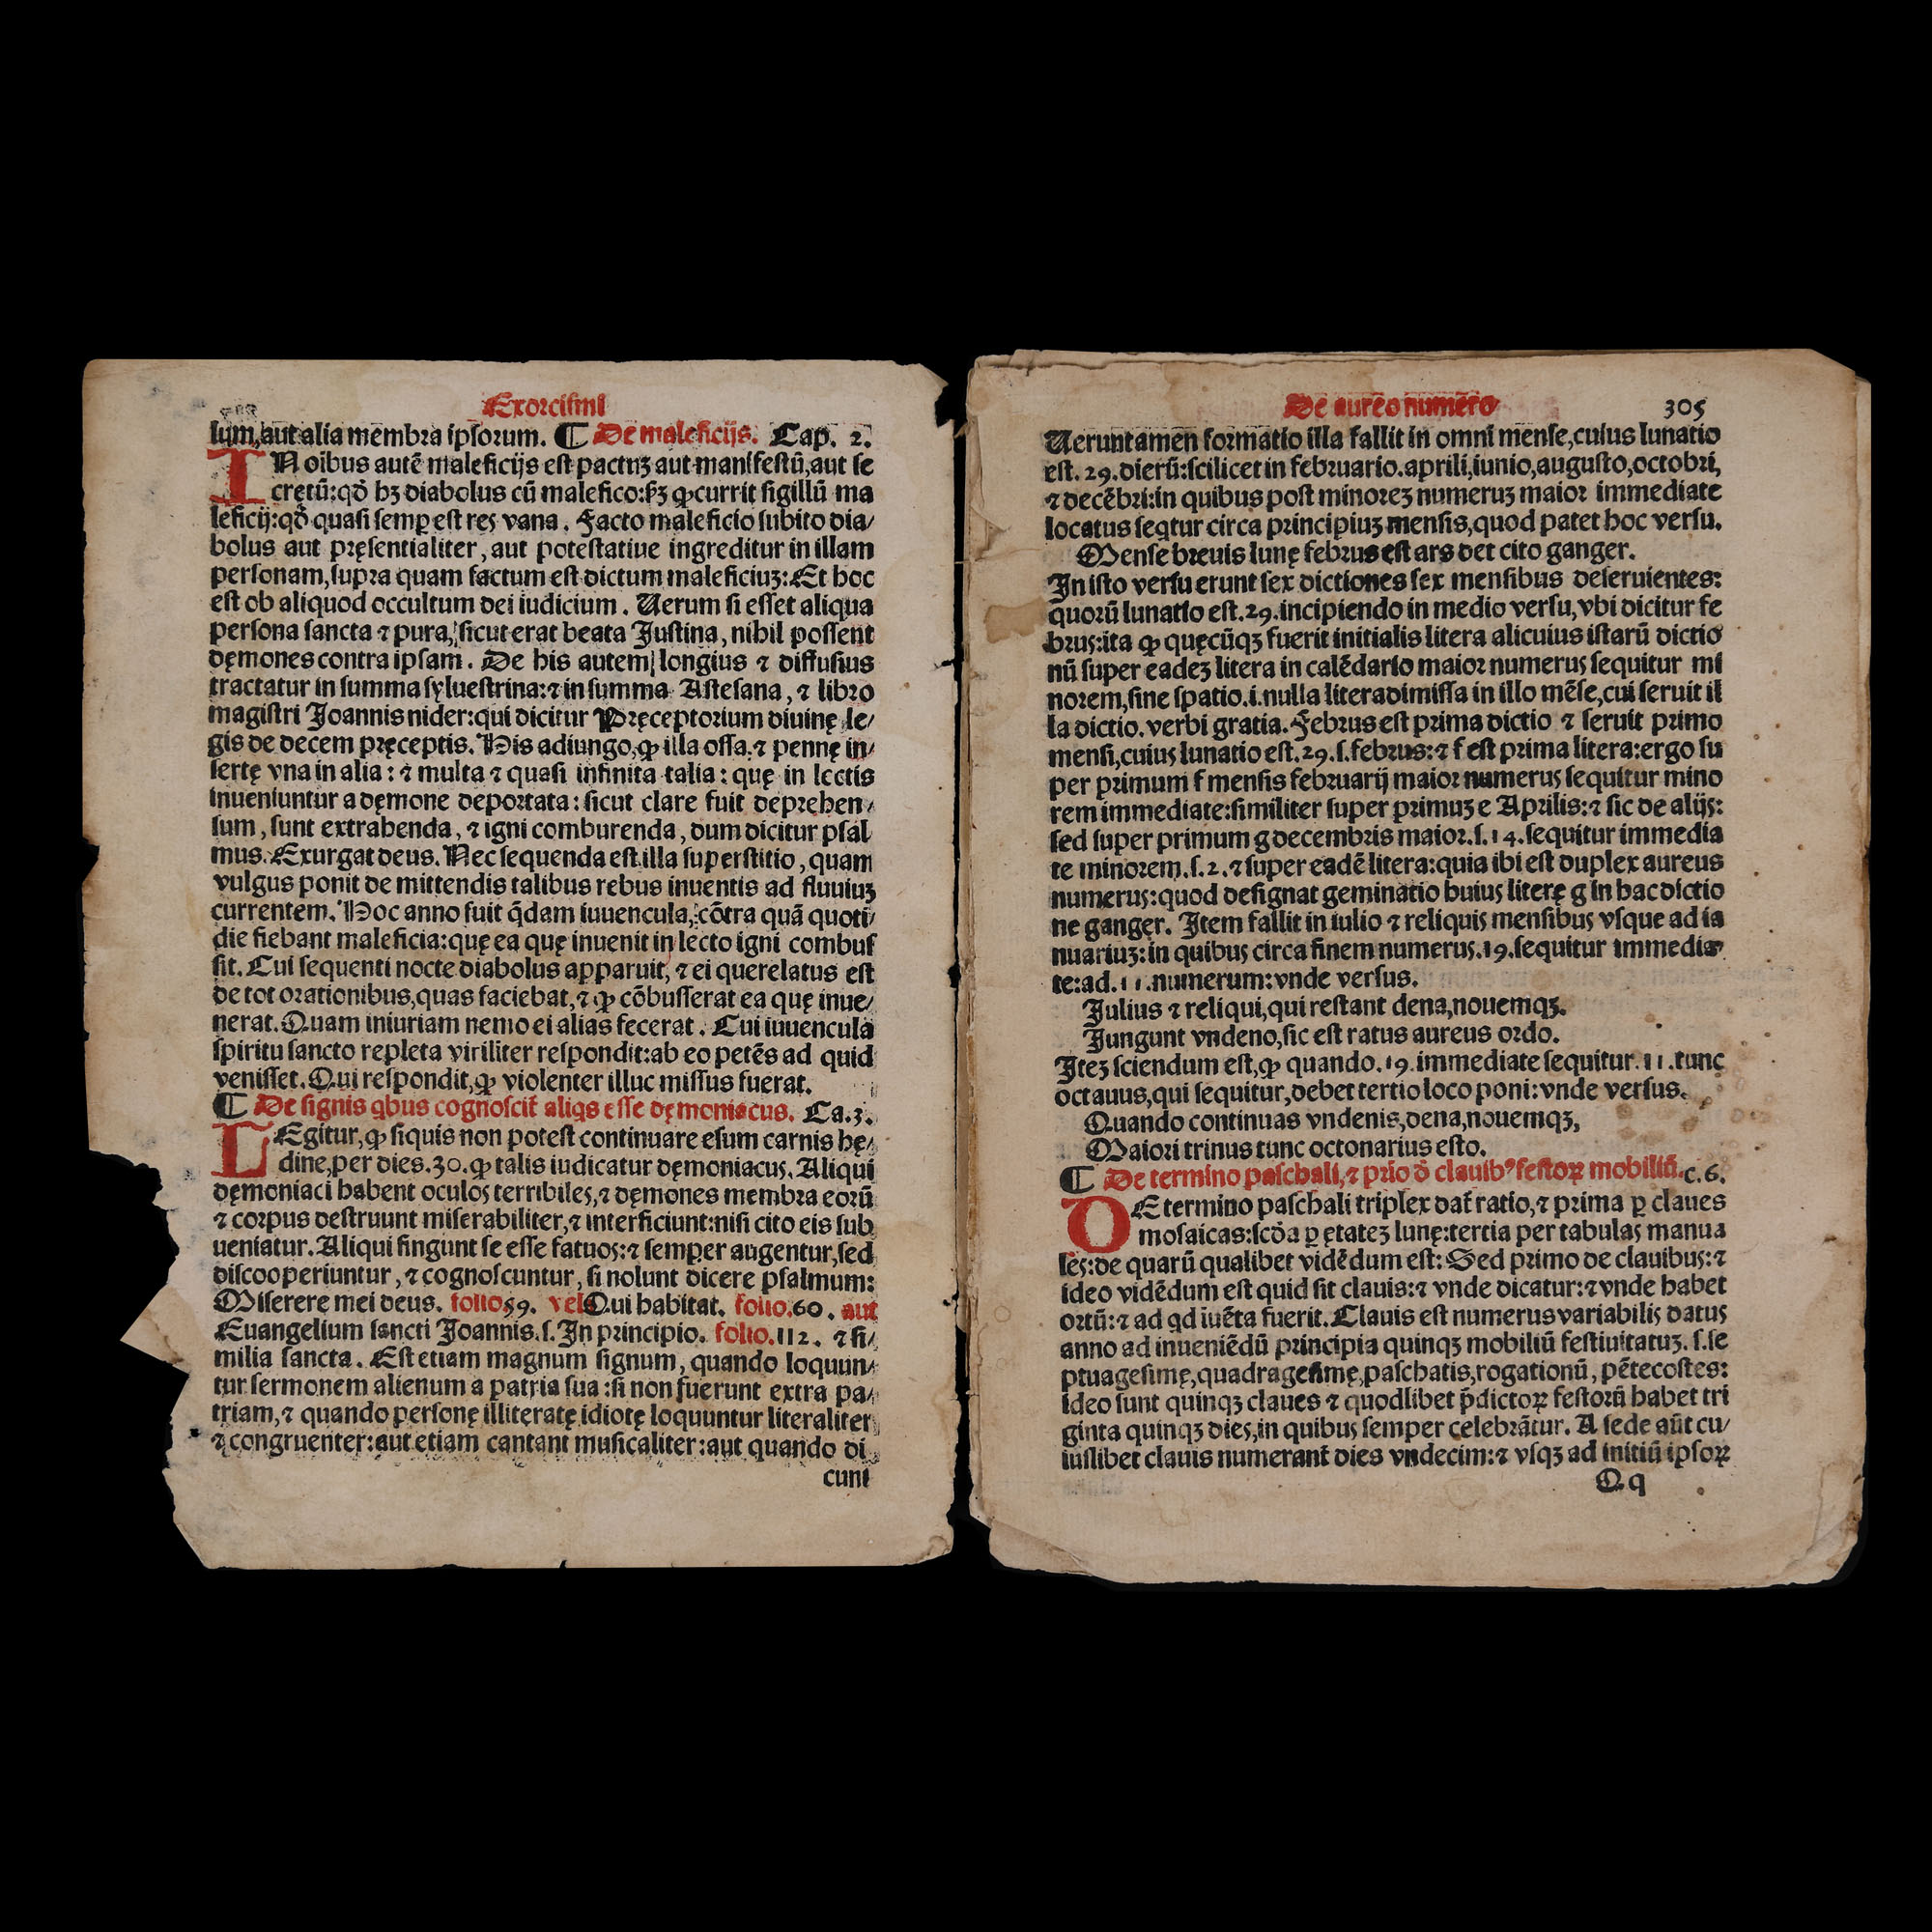 Exorcismi
lum, aut alia mēmbra ipsorum. ¶ De maleficijs. Cap. 2.
IN oībus autē maleficijs est pactuꝫ aut manifestū, aut se
cretū: qđ hꝫ diabolus cū malefico: hꝫ ꝙ currit sigillū ma
leficij: qđ quasi semꝑ est res vana. Facto maleficio subito dia/
bolus aut pręsentialiter, aut potestatiue ingreditur in illam
personam, supra quam factum est dictum maleficiuꝫ: Et hoc
est ob aliquod occultum dei iudicium. Uerum si esset aliqua
persona sancta ⁊ pura, sicut erat beata Justina, nihil possent
dęmones contra ipsam. De his autem longius ⁊ diffusius
tractatur in summa syluestrina: ⁊ in summa Astesana, ⁊ libro
magistri Joannis nider: qui dicitur Pręceptorium diuinę le/
gis de decem pręceptis. His adiungo, ꝙ illa ossa ⁊ pennę in/
sertę vna in alia: ⁊ multa ⁊ quasi infinita talia: quę in lectis
inueniuntur a dęmone deportata: sicut clare fuit deprehen/
sum, sunt extrahenda, ⁊ igni comburenda, dum dicitur psal
mus. Exurgat deus. Nec sequenda est illa superstitio, quam
vulgus ponit de mittendis talibus rebus inuentis ad fluuiuꝫ
currentem. Hoc anno fuit q̄dam iuuencula, cōtra quā quoti/
die fiebant maleficia: quę ea quę inuenit in lecto igni combus
sit. Cui sequenti nocte diabolus apparuit, ⁊ ei querelatus est
de tot orationibus, quas faciebat, ⁊ ꝙ cōbusserat ea quę inue/
nerat. Quam iniuriam nemo ei alias fecerat. Cui iuuencula
spiritu sancto repleta viriliter respondit: ab eo petēs ad quid
venisset. Qui respondit, ꝙ violenter illuc missus fuerat.
¶ De signis qbus cognoscit̄ aliqs esse dęmoniacus. Ca. 3.
LEgitur, ꝙ siquis non potest continuare esum carnis hę/
dine, per dies. 30. ꝙ talis iudicatur dęmoniacus. Aliqui
dęmoniaci habent oculos terribiles, ⁊ dęmones membra eorū
⁊ corpus destruunt miserabiliter, ⁊ interficiunt: nisi cito eis sub
ueniatur. Aliqui fingunt se esse fatuos: ⁊ semper augentur, sed
discooperiuntur, ⁊ cognoscuntur, si nolunt dicere psalmum:
Miserere mei deus. folio 59. vel Qui habitat. folio. 60. aut
Euangelium sancti Joannis. s. In principio. folio. 112. ⁊ si/
milia sancta. Est etiam magnum signum, quando loquun/
tur sermonem alienum a patria sua: si non fuerunt extra pa/
triam, ⁊ quando personę illiteratę idiotę loquuntur literaliter
⁊ congruenter: aut etiam cantant musicaliter: aut quando di
cunt
De aureo numero 305
Ueruntamen formatio illa fallit in omni mense, cuius lunatio
est. 29. dierū: scilicet in februario. aprili, iunio, augusto, octobri,
⁊ decēbri: in quibus post minoreꝫ numeruꝫ maior immediate
locatus seqtur circa principiuꝫ mensis, quod patet hoc versu.
Mense breuis lunę februs est ars det cito ganger.
In isto versu erunt sex dictiones sex mensibus deseruientes:
quorū lunatio est. 29. incipiendo in medio versu, vbi dicitur fe
brus: ita ꝙ quęcūqꝫ fuerit initialis litera alicuius istarū dictio
nū super eadeꝫ litera in calēdario maior numerus sequitur mi
norem, sine spatio. i. nulla litera dimissa in illo mēse, cui seruit il
la dictio. verbi gratia. Februs est prima dictio ⁊ seruit primo
mensi, cuius lunatio est. 29. s. februs: ⁊ f est prima litera: ergo su
per primum f mensis februarij maior numerus sequitur mino
rem immediate: similiter super primuꝫ e Aprilis: ⁊ sic de alijs:
sed super primum g decembris maior. s. 14. sequitur immedia
te minorem. s. 2. ⁊ super eadē litera: quia ibi est duplex aureus
numerus: quod designat geminatio huius literę g in hac dictio
ne ganger. Item fallit in iulio ⁊ reliquis mensibus vsque ad ia
nuariuꝫ: in quibus circa finem numerus. 19. sequitur immedia/
te: ad. 11. numerum: vnde versus.
Julius ⁊ reliqui, qui restant dena, nouemqꝫ.
Jungunt vndeno, sic est ratus aureus ordo.
Iteꝫ sciendum est, ꝙ quando. 19. immediate sequitur. 11. tunc
octauus, qui sequitur, debet tertio loco poni: vnde versus.
Quando continuas vndenis, dena, nouemqꝫ,
Maiori trinus tunc octonarius esto.
¶ De termino paschali, ⁊ prīo đ clauibꝰ festoꝝ mobiliū. c. 6.
DE termino paschali triplex dat̄ ratio, ⁊ prima ꝑ claues
mosaicas: scđa ꝑ ętateꝫ lunę: tertia per tabulas manua
les: de quarū qualibet vidēdum est: Sed primo de clauibus: ⁊
ideo vidēdum est quid sit clauis: ⁊ vnde dicatur: ⁊ vnde habet
ortū: ⁊ ad qd iuēta fuerit. Clauis est numerus variabilis datus
anno ad inueniēdū principia quinqꝫ mobiliū festiuitatuꝫ. s. se
ptuagesimę, quadragesimę, paschatis, rogationū, pētecostes:
ideo sunt quinqꝫ claues ⁊ quodlibet p̄dictoꝝ festorū habet tri
ginta quinqꝫ dies, in quibus semper celebrātur. A sede aūt cu/
iuslibet clauis numerant̄ dies vndecim: ⁊ vsqꝫ ad initiū ipsoꝝ
Qq